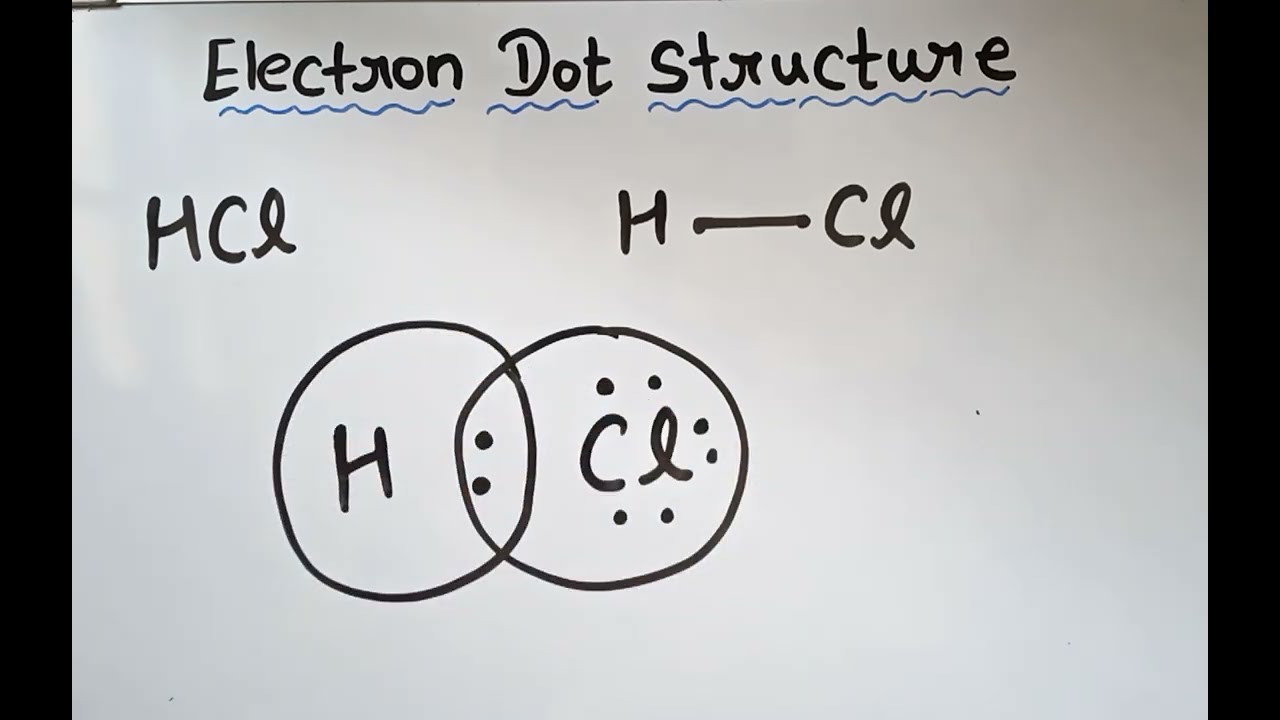 Electron Dot Structure
HCl H — Cl
H : Cl